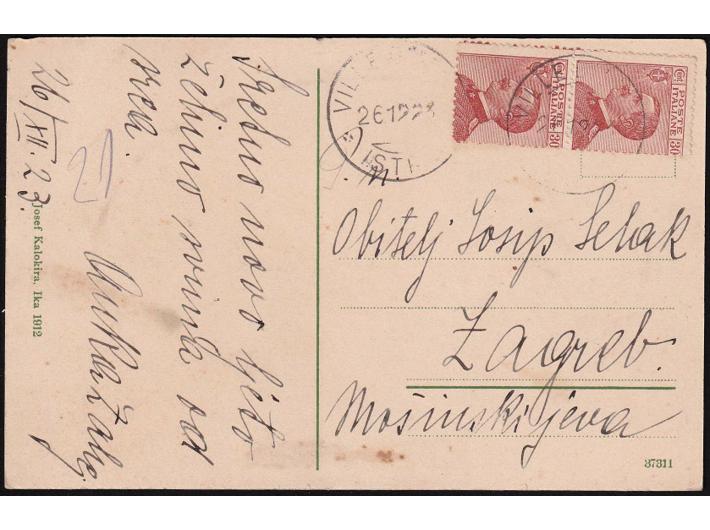 Sretno novo ljeto
želimo svima od
srca.
26/XII. 23.
Josef Kalokira, Ika 1912
26 12 23
ISTR
POSTE
ITALIANE
Cent
30
POSTE
ITALIANE
Cent
30
Obitelj Josip Selak
Zagreb.
Mošinskijeva
37311